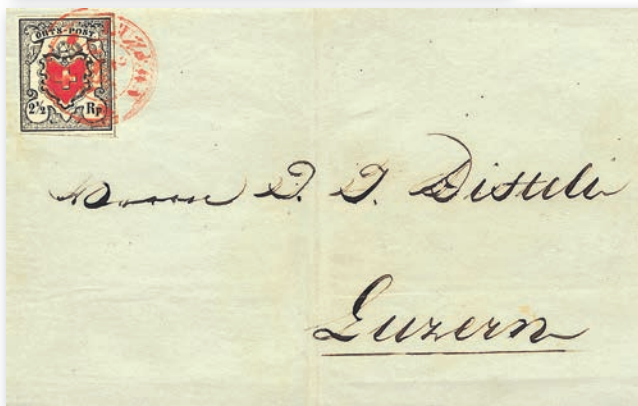 ORTS-POST
2½ Rp
Herrn J. J. Disteli
Luzern